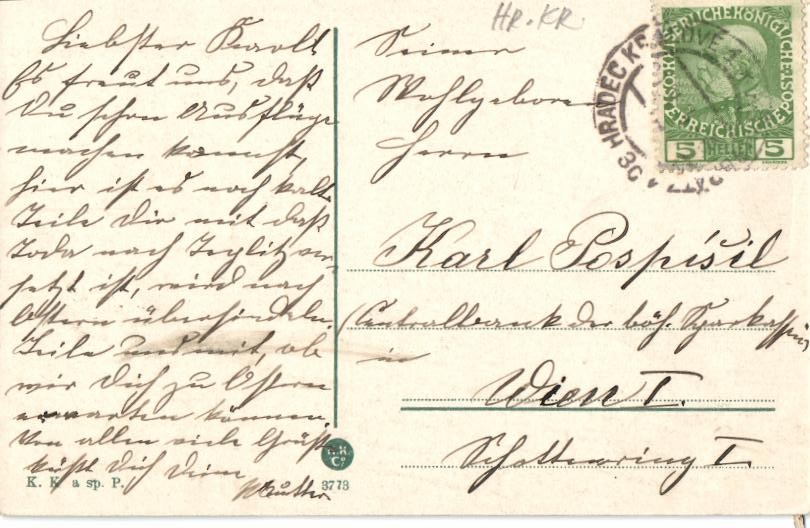 Liebster Karl!
Es freut uns, daß
Du schon Ausflüge
machen kannst,
hier ist es noch kalt
Teile Dir mit daß
Toda nach Teplitz ver-
setzt ist, wird nach
Ostern übersiedeln.
Teile uns mit, ob
wir Dich zu Ostern
erwarten können.
Von allen viele Grüße
küßt Dich Deine
Mutter
K. K. a sp. P.
3773
HR. KR
Seiner
Wohlgeboren
Herrn
Karl Pospíšil
(Centralbank der böh. Sparkassen)
in
Wien I.
Schottenring 1.
HRADEC KRÁLOVÉ
KAISERLICHE KÖNIGLICHE
ÖSTERREICHISCHE POST
5 HELLER 5